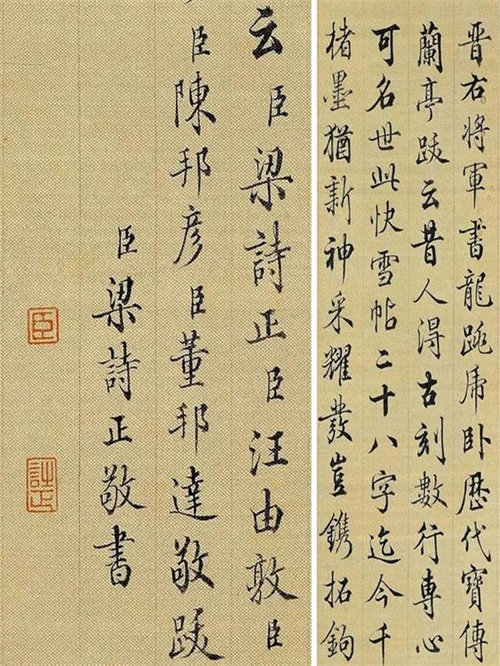 晋右将軍書龍跳虎卧歷代寶傳
蘭亭跋云昔人得古刻數行專心
可名世此快雪帖二十八字迄今千
楮墨猶新神采耀發豈鐫拓鉤
云臣梁詩正臣汪由敦臣
臣陳邦彦臣董邦達敬跋
臣梁詩正敬書
臣
詩正